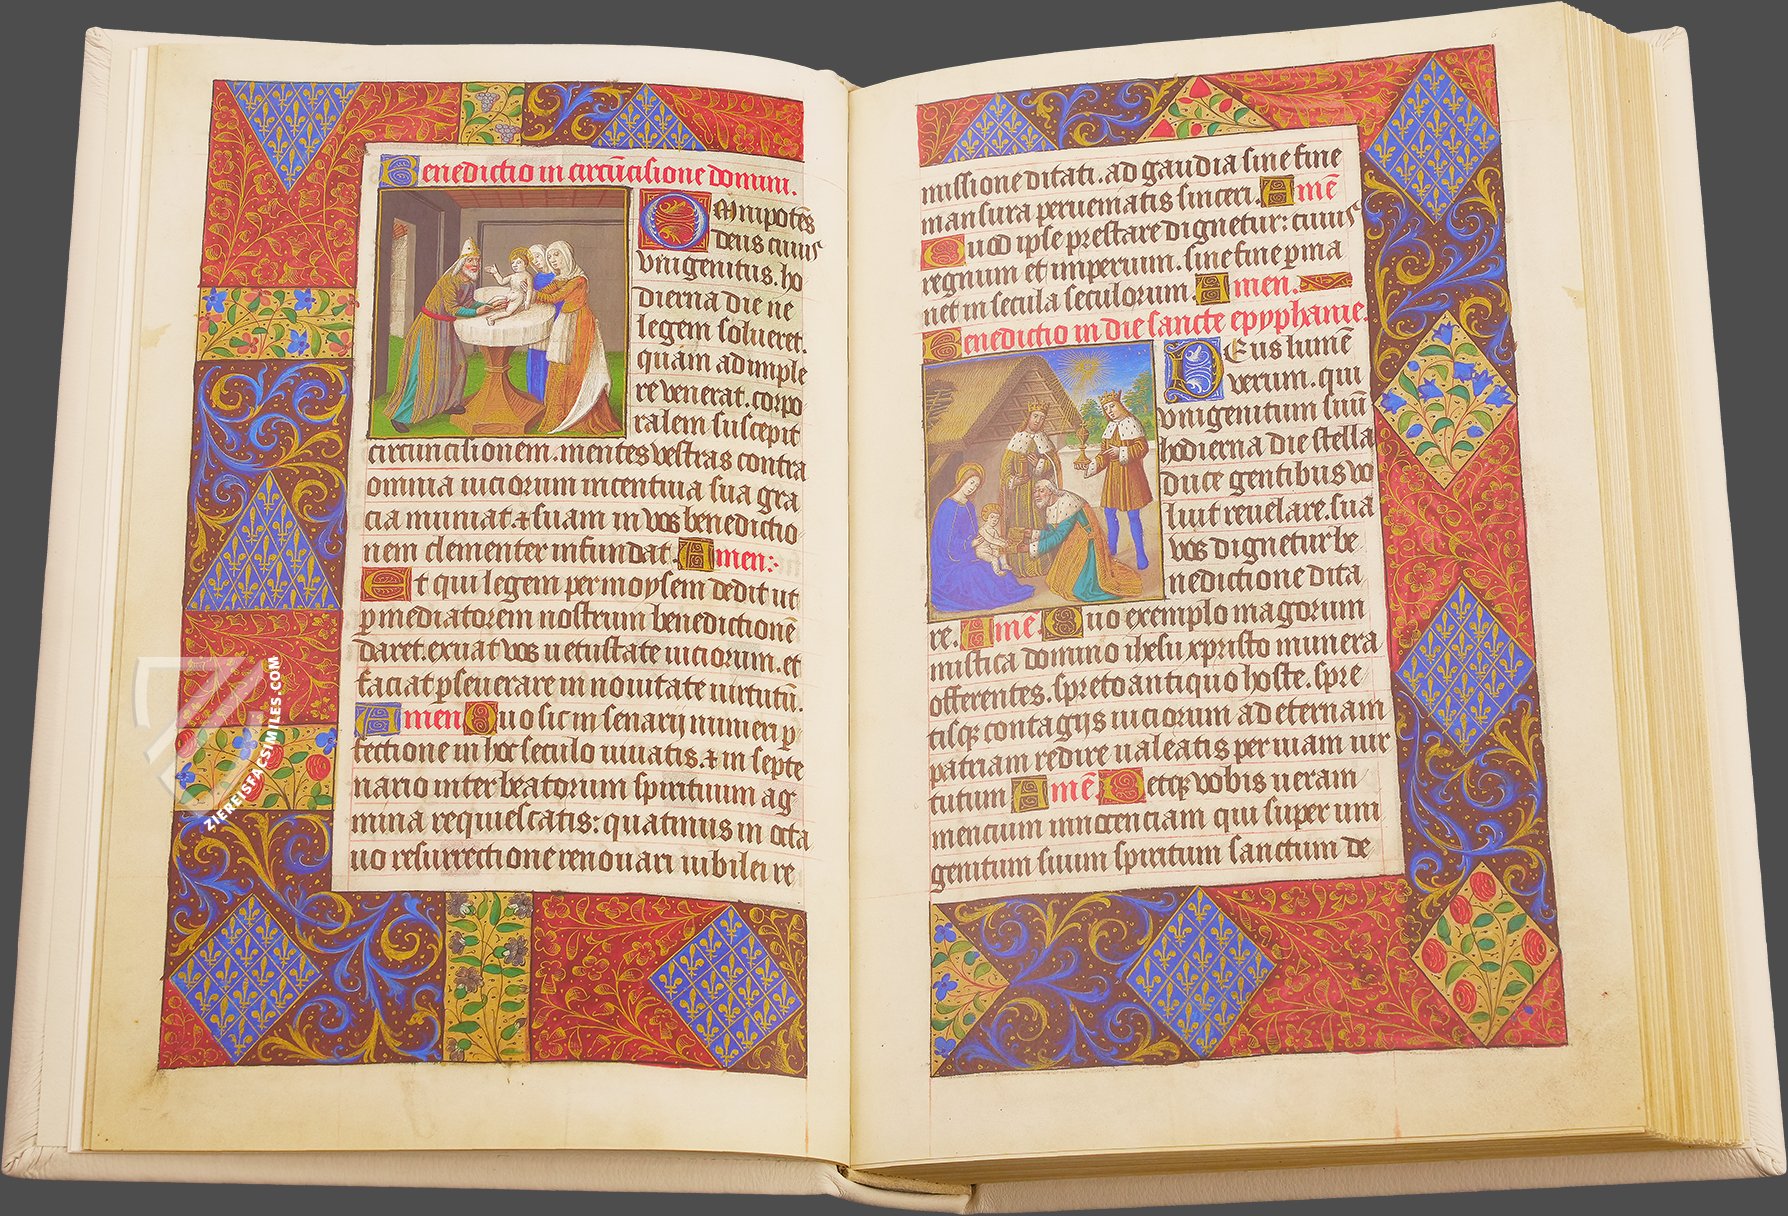 Benedictio in circūcisione domini.
OMnipotēs
deus cuius
vnigenitus. ho
dierna die ne
legem solueret.
quam adimple
re venerat. corpo
ralem suscepit
circuncisionem. mentes vestras contra
omnia uiciorum incentiua sua gra
cia muniat ⁊ suam in vos benedictio
nem clementer infundat. Amen:
Et qui legem per moysem dedit ut
ꝑ mediatorem nostrum benedictionē
daret. exuat vos uetustate uiciorum. et
faciat ꝑseuerare in nouitate uirtutū.
Amen Quo sic in senarij numeri ꝑ
fectione in hoc seculo uiuatis. ⁊ in septe
nario inter beatorum spirituum ag
mina requiescatis: quatinus in octa
uo resurrectione renouari iubilei re
6
missione ditati. ad gaudia sine fine
mansura peruemiatis sinceri. Amē
Quod ipse prestare dignetur: cuius
regnum et imperium. sine fine ꝑma
net in secula seculorum. Amen.
Benedictio in die sancte epyphanie.
DEus lumē
verum. qui
vnigenitum suū
hodierna die stella
duce gentibus vo
luit reuelare. sua
vos dignetur be
nedictione dita
re. Amē. Quo exemplo magorum
mistica domino ihesu xpristo munera
offerentes. spreto antiquo hoste. spre
tisqꝫ contagijs uiciorum ad eternam
patriam redire ualeatis per uiam uir
tutum Amē. Detqꝫ vobis ueram
mencium innocenciam qui super uni
genitum suum spiritum sanctum de
ZIEREISFACSIMILES.COM